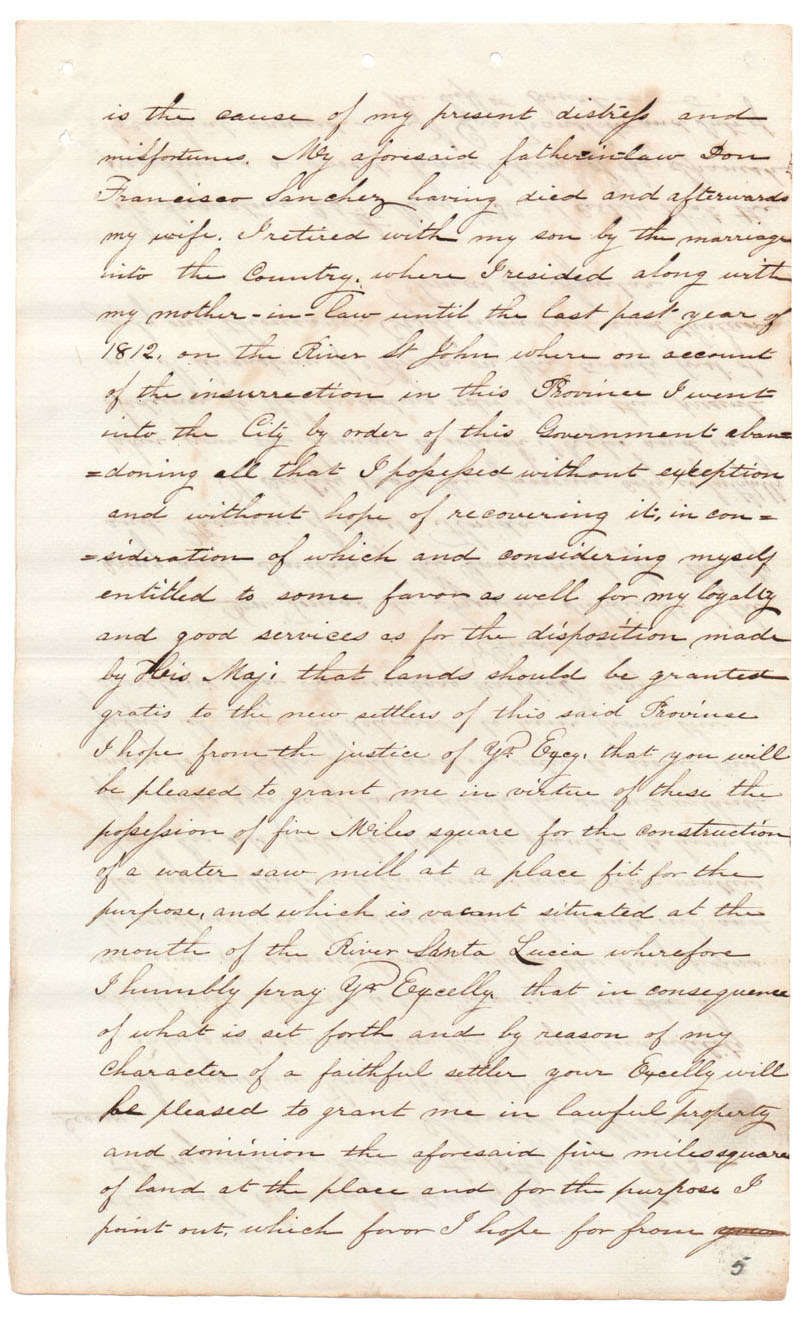 is the cause of my present distress and
misfortunes. My aforesaid father-in-law Don
Francisco Sanchez having died and afterwards
my wife. I retired with my son by the marriage
into the Country, where I resided along with
my mother-in-law until the last past year of
1812, on the River St John where on account
of the insurrection in this Province I went
into the City by order of this Government aban=
=doning all that I possessed without exception
and without hope of recovering it, in con=
=sideration of which and considering myself
entitled to some favor as well for my loyalty
and good services as for the disposition made
by His Maj: that lands should be granted
gratis to the new settlers of this said Provinse
I hope from the justice of Yr. Excy. that you will
be pleased to grant me in virtue of these the
possession of five Miles square for the construction
of a water saw mill at a place fit for the
purpose, and which is vacant situated at the
mouth of the River Santa Lucia wherefore
I humbly pray Yr. Excelly that in consequence
of what is set forth and by reason of my
character of a faithful settler your Excelly will
be pleased to grant me in lawful property
and dominion the aforesaid five miles square
of land at the place and for the purpose I
point out, which favor I hope for from your
5